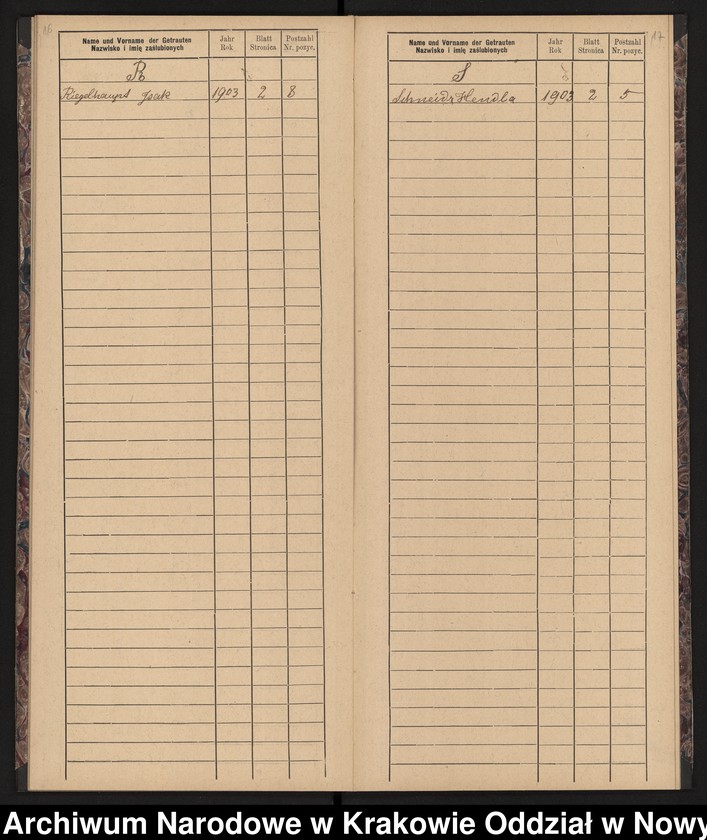 16
Name und Vorname der Getrauten
Nazwisko i imię zaślubionych
Jahr
Rok
Blatt
Stronica
Postzahl
Nr. pozyc.
R
Riegelhaupt Izak 1903 2 8
17
Name und Vorname der Getrauten
Nazwisko i imię zaślubionych
Jahr
Rok
Blatt
Stronica
Postzahl
Nr. pozyc.
S
Schneidr Hendla 1903 2 5
Archiwum Narodowe w Krakowie Oddział w Nowy